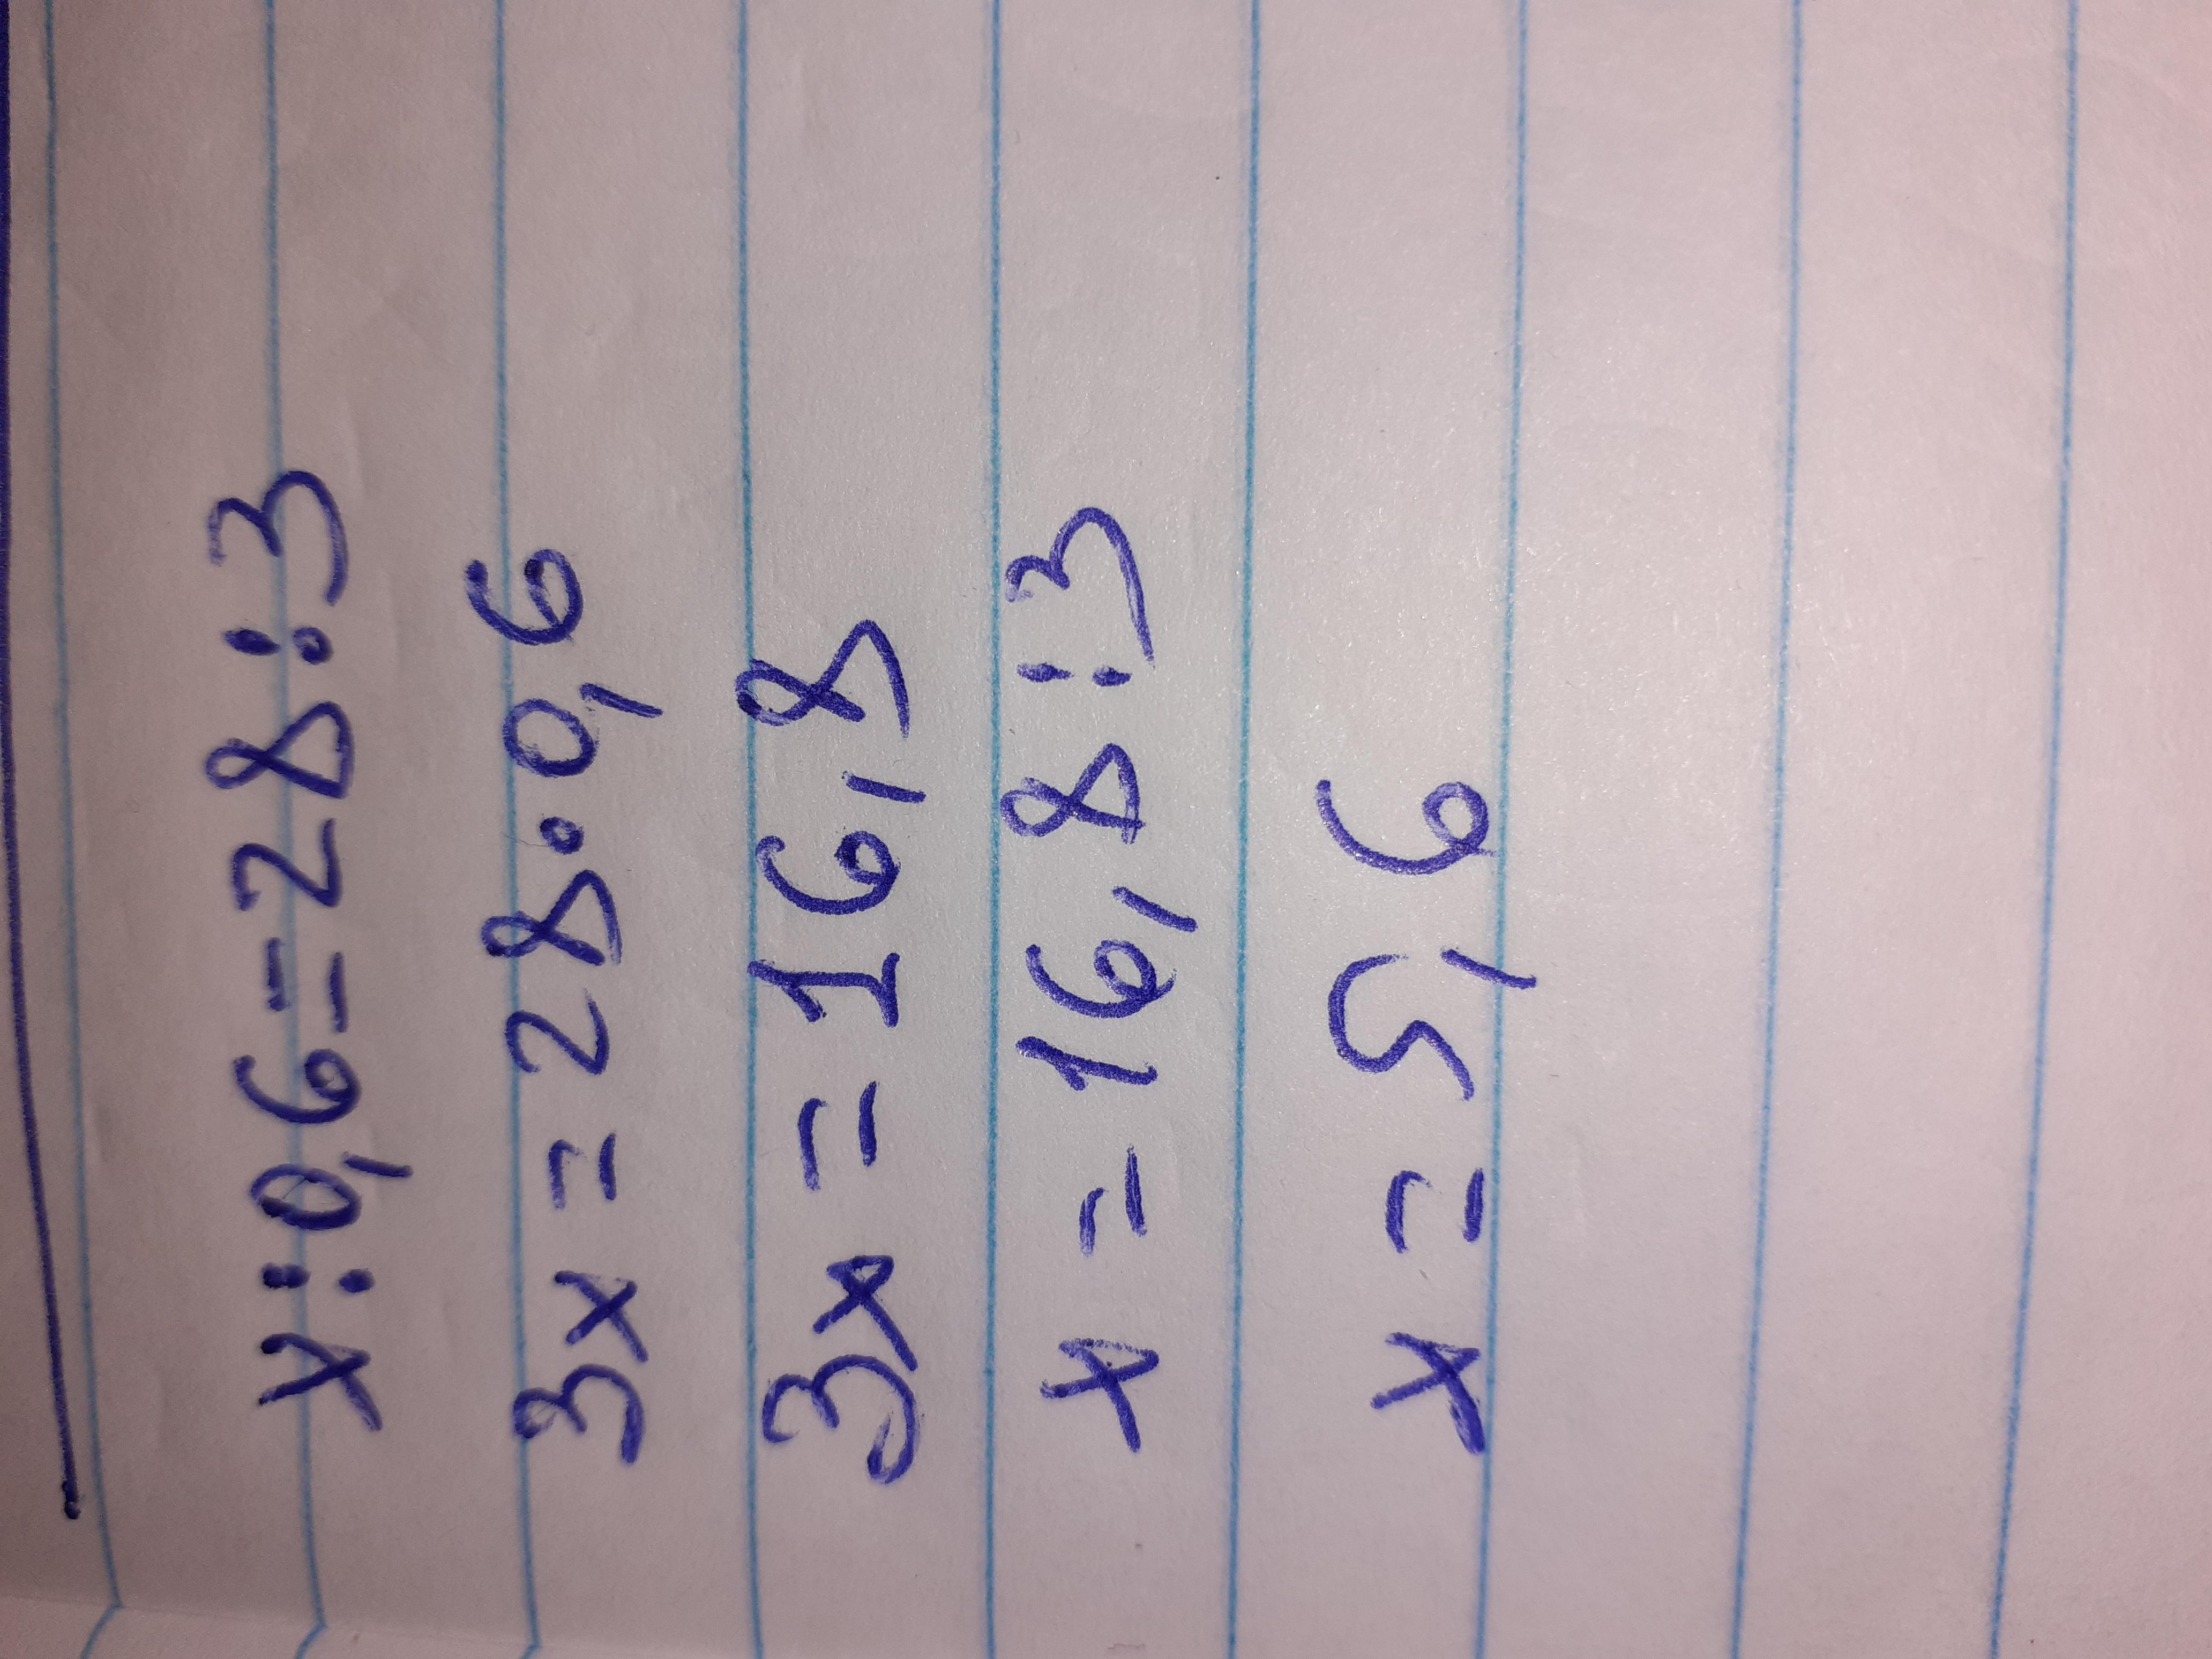 x:0,6=28:3
3x=28·0,6
3x=16,8
x=16,8:3
x=5,6